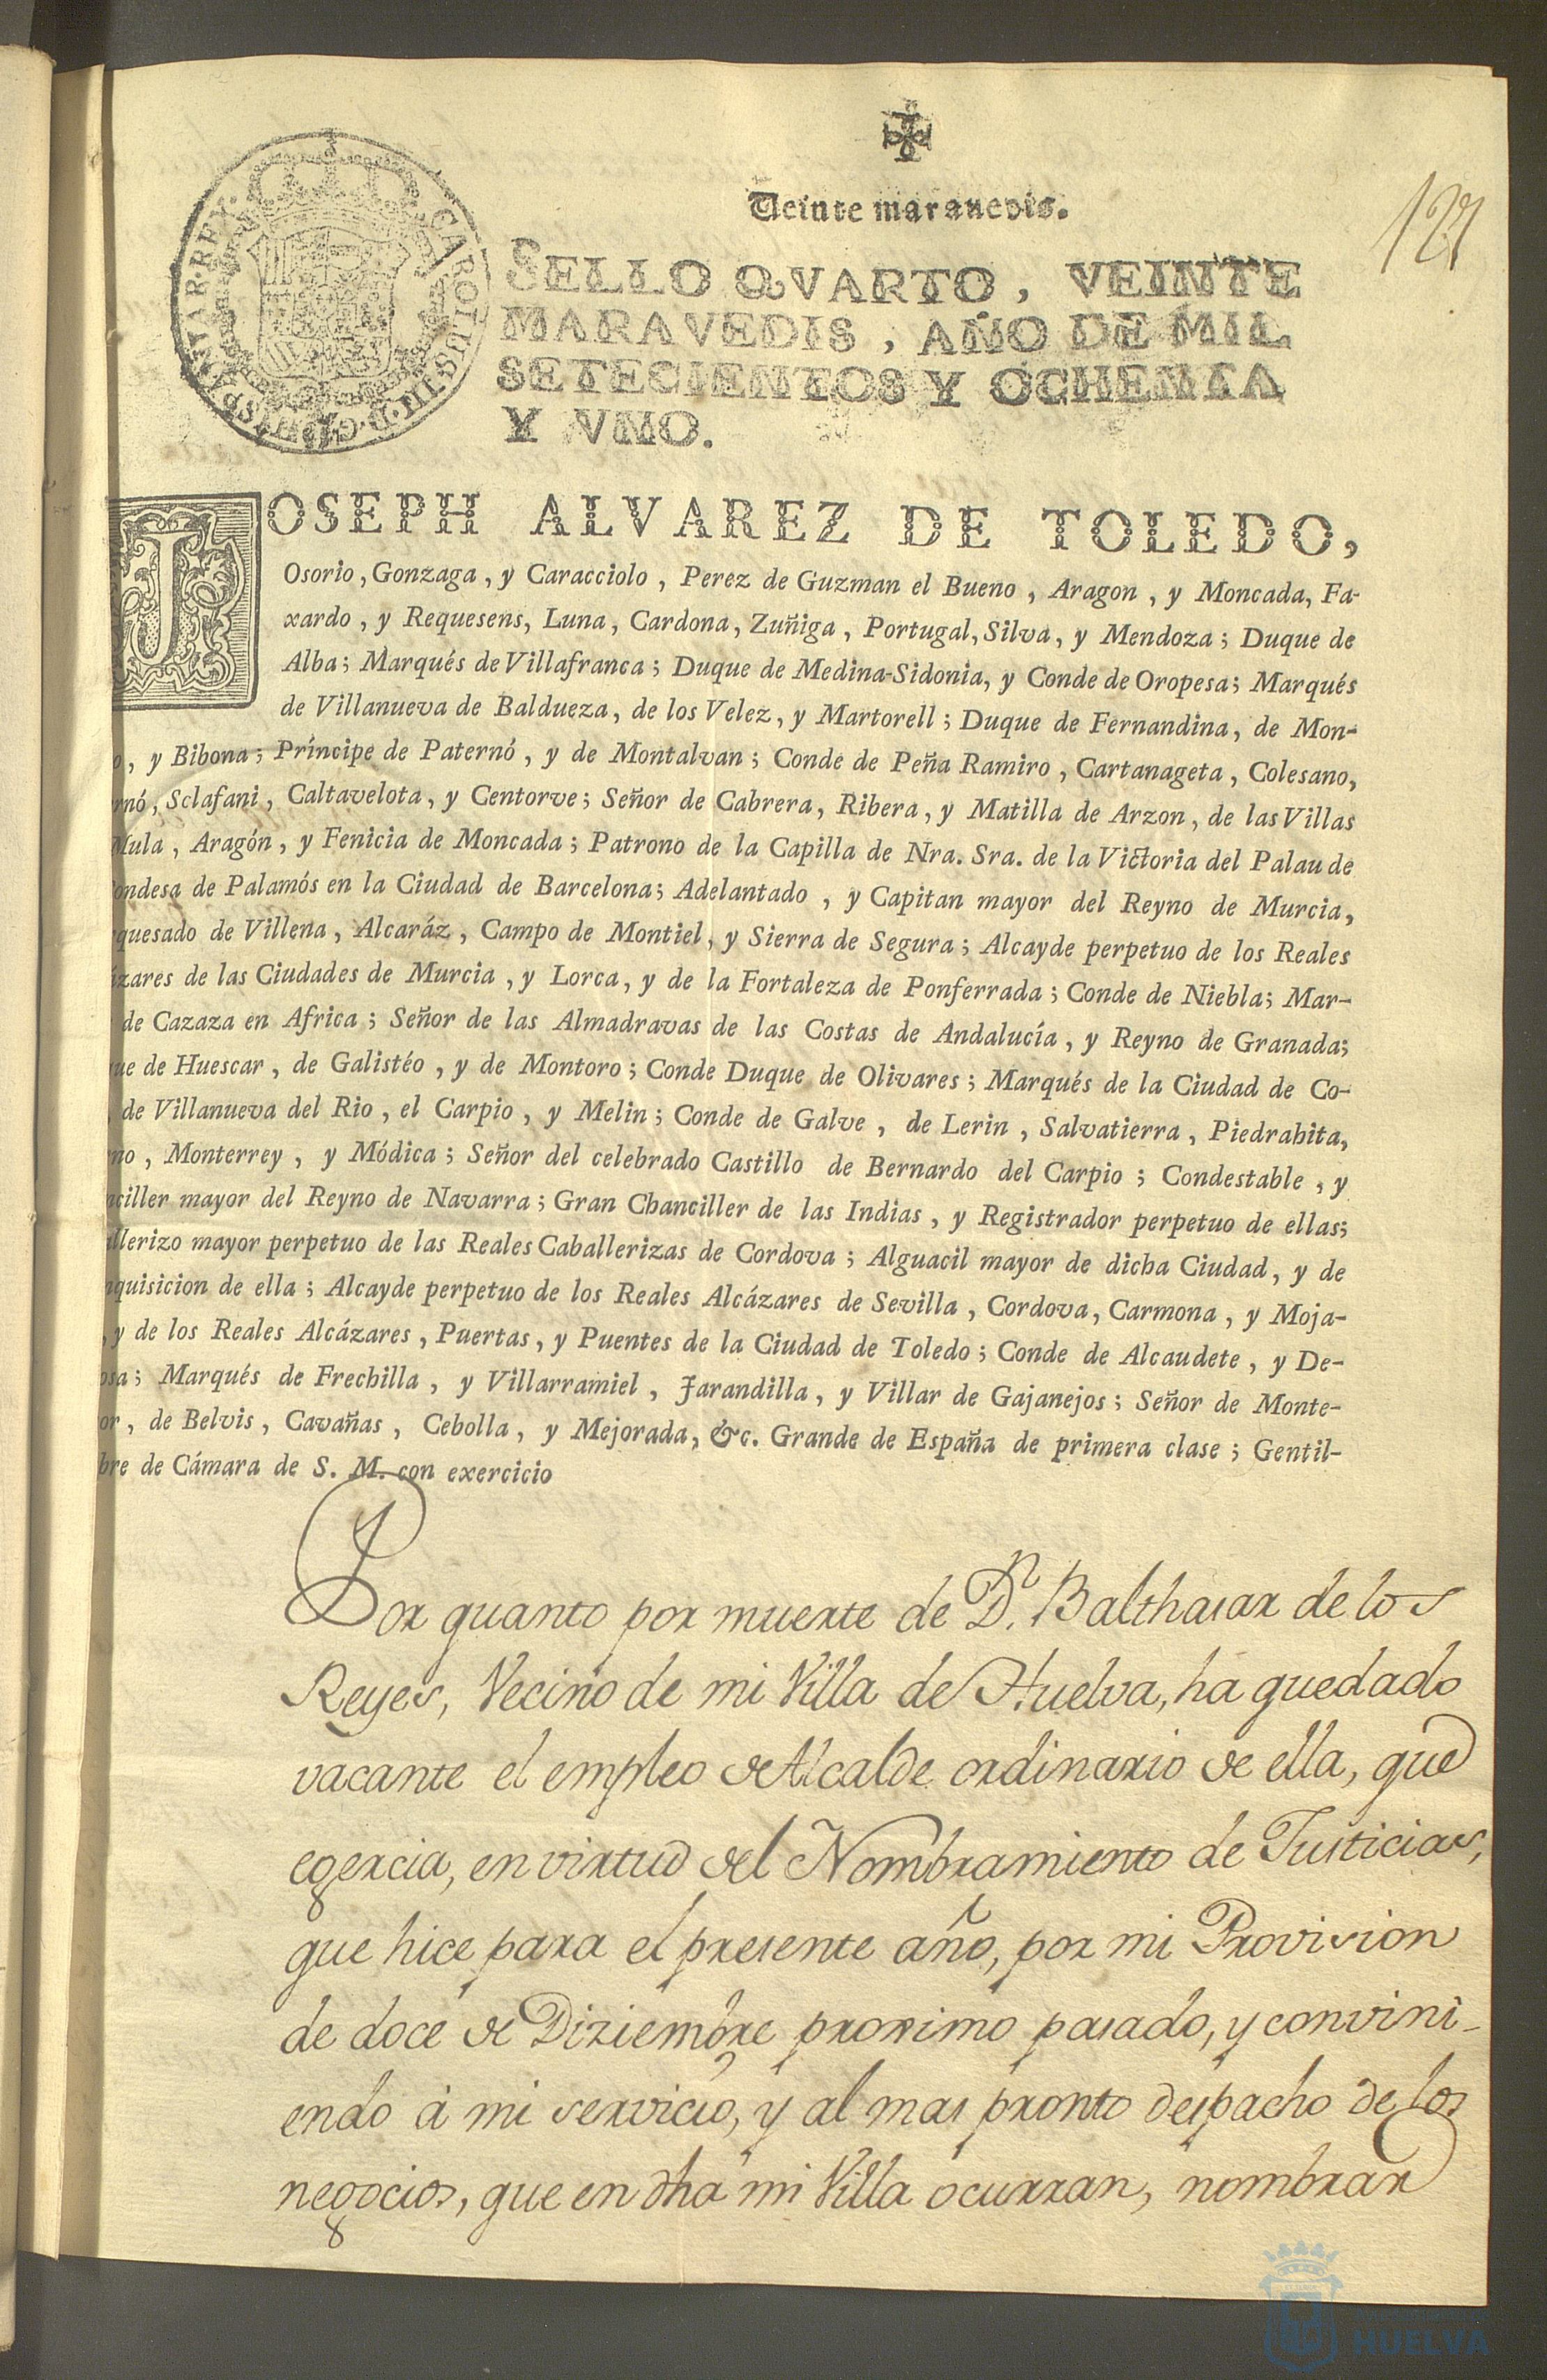 Veinte maravedis.
127
SELLO QVARTO, VEINTE
MARAVEDIS, AÑO DE MIL
SETECIENTOS Y OCHENTA
Y VNO.
CAROLUS III D G HISPANIAR REX
JOSEPH ALVAREZ DE TOLEDO,
Osorio, Gonzaga, y Caracciolo, Perez de Guzman el Bueno, Aragon, y Moncada, Fa-
xardo, y Requesens, Luna, Cardona, Zuñiga, Portugal, Silva, y Mendoza; Duque de
Alba; Marqués de Villafranca; Duque de Medina-Sidonia, y Conde de Oropesa; Marqués
de Villanueva de Baldueza, de los Velez, y Martorell; Duque de Fernandina, de Mon-
o, y Bibona; Príncipe de Paternó, y de Montalvan; Conde de Peña Ramiro, Cartanageta, Colesano,
rnó, Sclafani, Caltavelota, y Centorve; Señor de Cabrera, Ribera, y Matilla de Arzon, de las Villas
Mula, Aragón, y Fenicia de Moncada; Patrono de la Capilla de Nra. Sra. de la Victoria del Palau de
ondesa de Palamós en la Ciudad de Barcelona; Adelantado, y Capitan mayor del Reyno de Murcia,
quesado de Villena, Alcaráz, Campo de Montiel, y Sierra de Segura; Alcayde perpetuo de los Reales
ázares de las Ciudades de Murcia, y Lorca, y de la Fortaleza de Ponferrada; Conde de Niebla; Mar-
de Cazaza en Africa; Señor de las Almadravas de las Costas de Andalucía, y Reyno de Granada;
ue de Huescar, de Galistéo, y de Montoro; Conde Duque de Olivares; Marqués de la Ciudad de Co-
, de Villanueva del Rio, el Carpio, y Melin; Conde de Galve, de Lerin, Salvatierra, Piedrahita,
no, Monterrey, y Módica; Señor del celebrado Castillo de Bernardo del Carpio; Condestable, y
nciller mayor del Reyno de Navarra; Gran Chanciller de las Indias, y Registrador perpetuo de ellas;
allerizo mayor perpetuo de las Reales Caballerizas de Cordova; Alguacil mayor de dicha Ciudad, y de
nquisicion de ella; Alcayde perpetuo de los Reales Alcázares de Sevilla, Cordova, Carmona, y Moja-
, y de los Reales Alcázares, Puertas, y Puentes de la Ciudad de Toledo; Conde de Alcaudete, y De-
osa; Marqués de Frechilla, y Villarramiel, Jarandilla, y Villar de Gajanejos; Señor de Monte-
or, de Belvis, Cavañas, Cebolla, y Mejorada, &c. Grande de España de primera clase; Gentil-
bre de Cámara de S. M. con exercicio
Por quanto por muerte de Dn. Balthasar de los
Reyes, Vecino de mi Villa de Huelva, há quedado
vacante el empleo de Alcalde ordinario de ella, que
egercia, en virtud del Nombramiento de Justicias,
que hice para el presente año, por mi Provision
de doce de Diziembre proximo pasado, y convini-
endo á mi servicio, y al mas pronto despacho de los
negocios, que en dha mi Villa ocurran, nombrar
HUELVA